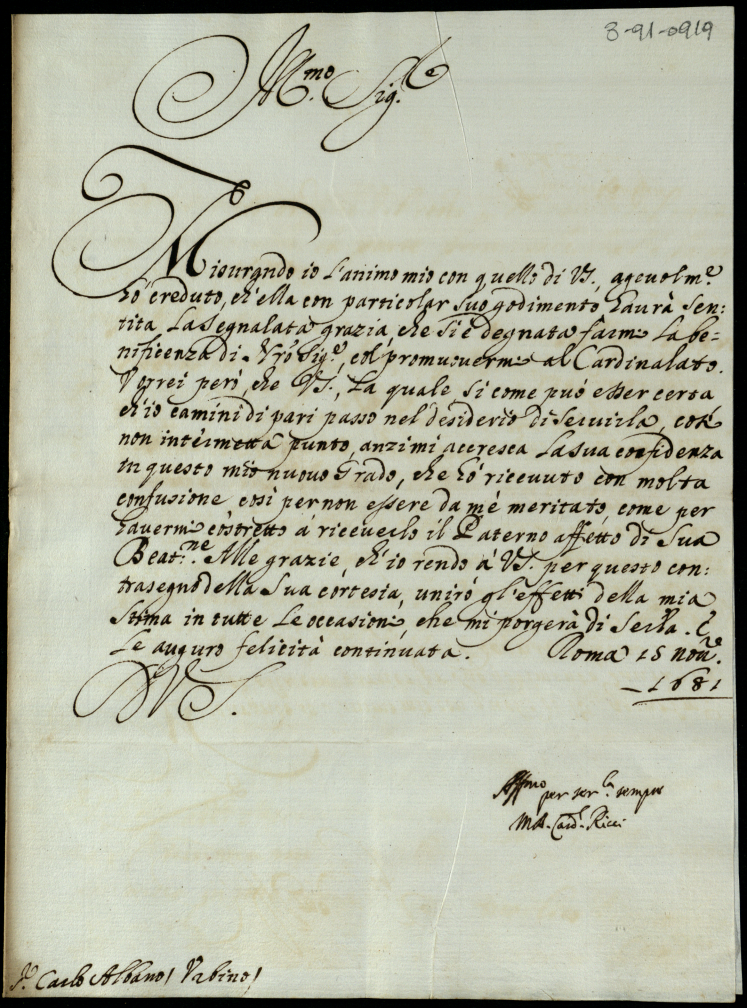 8-91-0919
Ill.mo Sig.re
Misurando io l'animo mio con quello di VS., agevolm.e
hò creduto, ch'ella con particolar suo godimento haurà sen:
tita la segnalata grazia, che si è degnata farmi la be=
nificenza di Nrô Sig.re, col promuovermi al Cardinalato.
Vorrei però, che VS., la quale si come può esser certa
ch'io camini di pari passo nel desiderio di servirla, così
non intermetta punto, anzi mi accresca la sua confidenza
in questo mio nuovo Grado, che hò ricevuto con molta
confusione così per non essere da mè meritato, come per
havermi costretto à riceverlo il Paterno affetto di Sua
Beat.ne. Alle grazie, ch'io rendo à VS. per questo con:
trasegno della Sua cortesia, unirò gl'effetti della mia
stima in tutte le occasioni, che mi porgerà di Serla. E
le auguro felicità continuata. Roma 15 nov.e
1681
VS.
Aff.mo per ser.la sempre
MA. Card. Ricci
S.r Carlo Albani / Urbino /